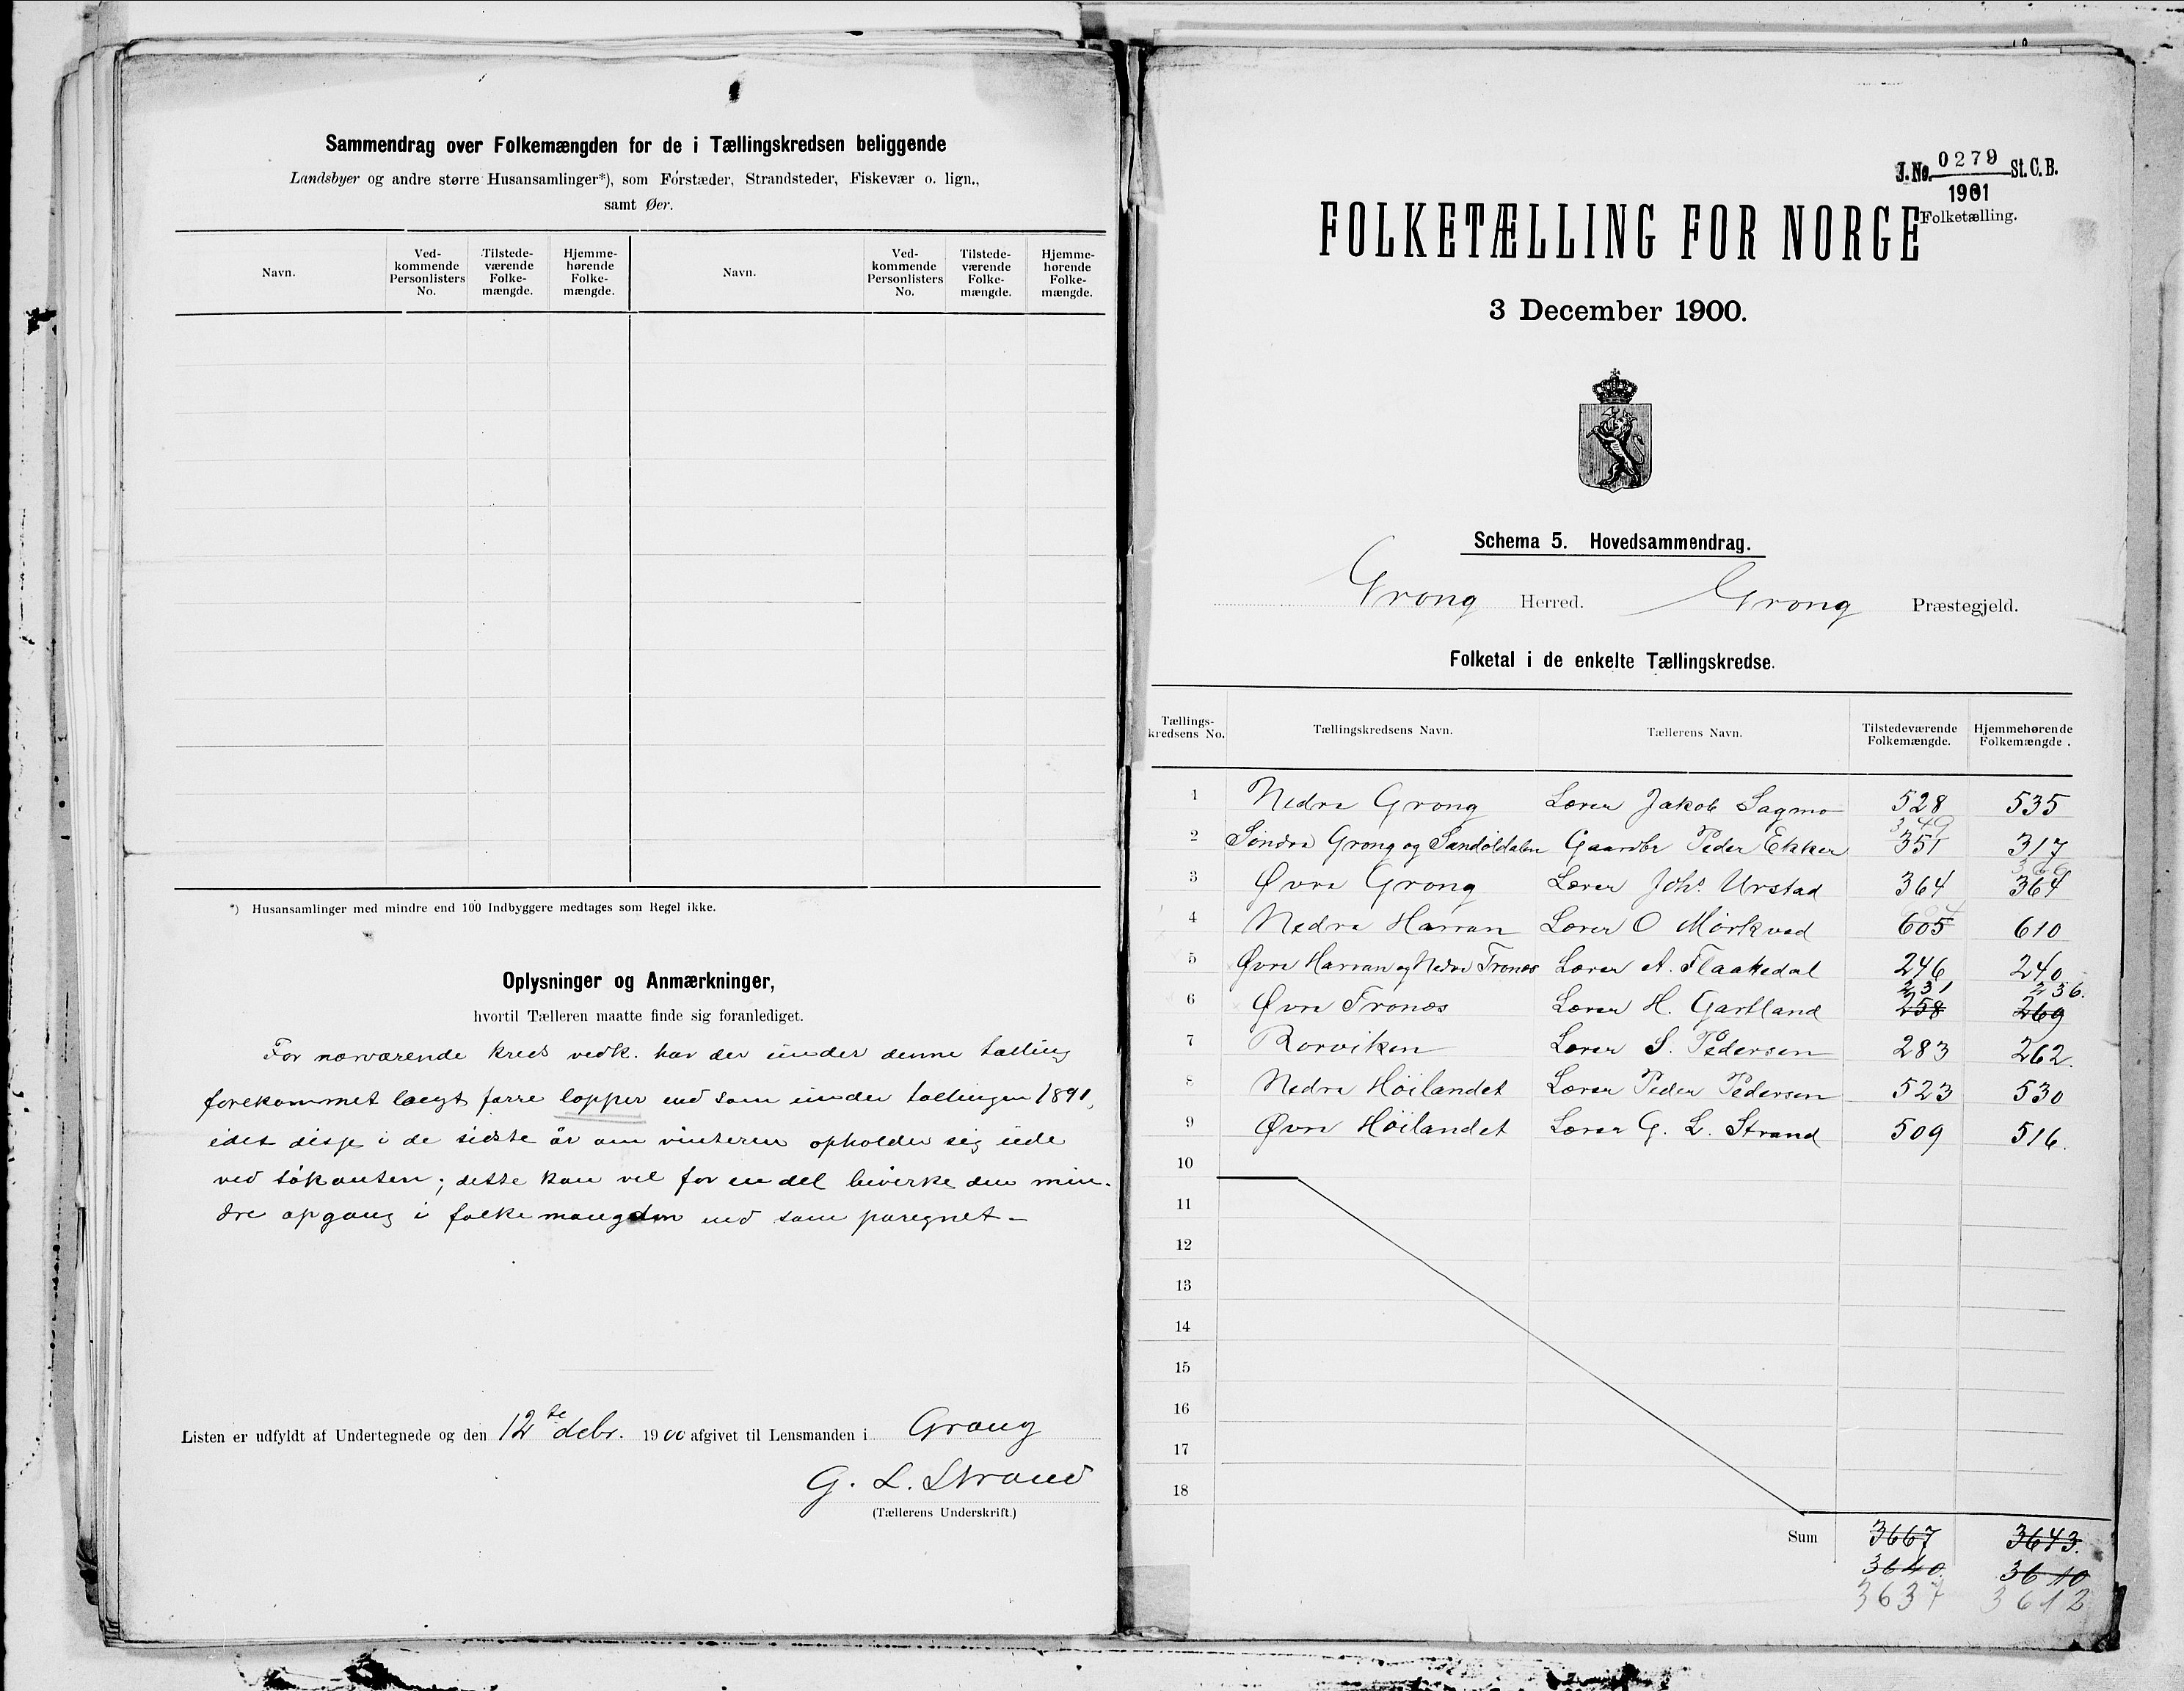 Sammendrag over Folkemængden for de i Tællingskredsen beliggende
Landsbyer og andre større Husansamlinger*), som Forstæder, Strandsteder, Fiskevær o. lign.,
samt Øer.
Navn. Ved-kommende Personlisters No. Tilstede-værende Folke-mængde. Hjemme-hørende Folke-mængde. Navn. Ved-kommende Personlisters No. Tilstede-værende Folke-mængde. Hjemme-hørende Folke-mængde.
*) Husansamlinger med mindre end 100 Indbyggere medtages som Regel ikke.
Oplysninger og Anmærkninger,
hvortil Tælleren maatte finde sig foranlediget.
For nærværende kreds vedk. har der under denne tælling
forekommet langt færre lapper end som under tællingen 1891,
idet disse i de sidste år om vinteren opholder sig ude
ved søkanten; dette kan vel for en del bevirke den min-
dre opgang i folkemængden end som påregnet –
Listen er udfyldt af Undertegnede og den 12te debr. 1900 afgivet til Lensmanden i Grong
G. L. Strand
(Tællerens Underskrift.)
J. No. 0279 St. C. B.
1901
Folketælling.
FOLKETÆLLING FOR NORGE
3 December 1900.
Schema 5. Hovedsammendrag.
Grong Herred. Grong Præstegjeld.
Folketal i de enkelte Tællingskredse.
Tællings-kredsens No. Tællingskredsens Navn. Tællerens Navn. Tilstedeværende Folkemængde. Hjemmehørende Folkemængde.
1 Nedre Grong Lærer Jakob Sagmo 528 535
349
2 Søndre Grong og Sandöldalen Gaardbr Peder Ekker 351 317
366
3 Øvre Grong Lærer Johs Urstad 364 364
4 Nedre Harran Lærer O Mörkved 605 610
5 Øvre Harran og Nedre Trones Lærer A. Flaakedal 246 240
231 236.
6 Øvre Trones Lærer H. Gartland 258 269
7 Rorviken Lærer S. Pedersen 283 262.
8 Nedre Höilandet Lærer Peder Pedersen 523 530
9 Øvre Höilandet Lærer G. L. Strand 509 516.
10
11
12
13
14
15
16
17
18
Sum 3667 3643.
3640. 3610
3637 3612